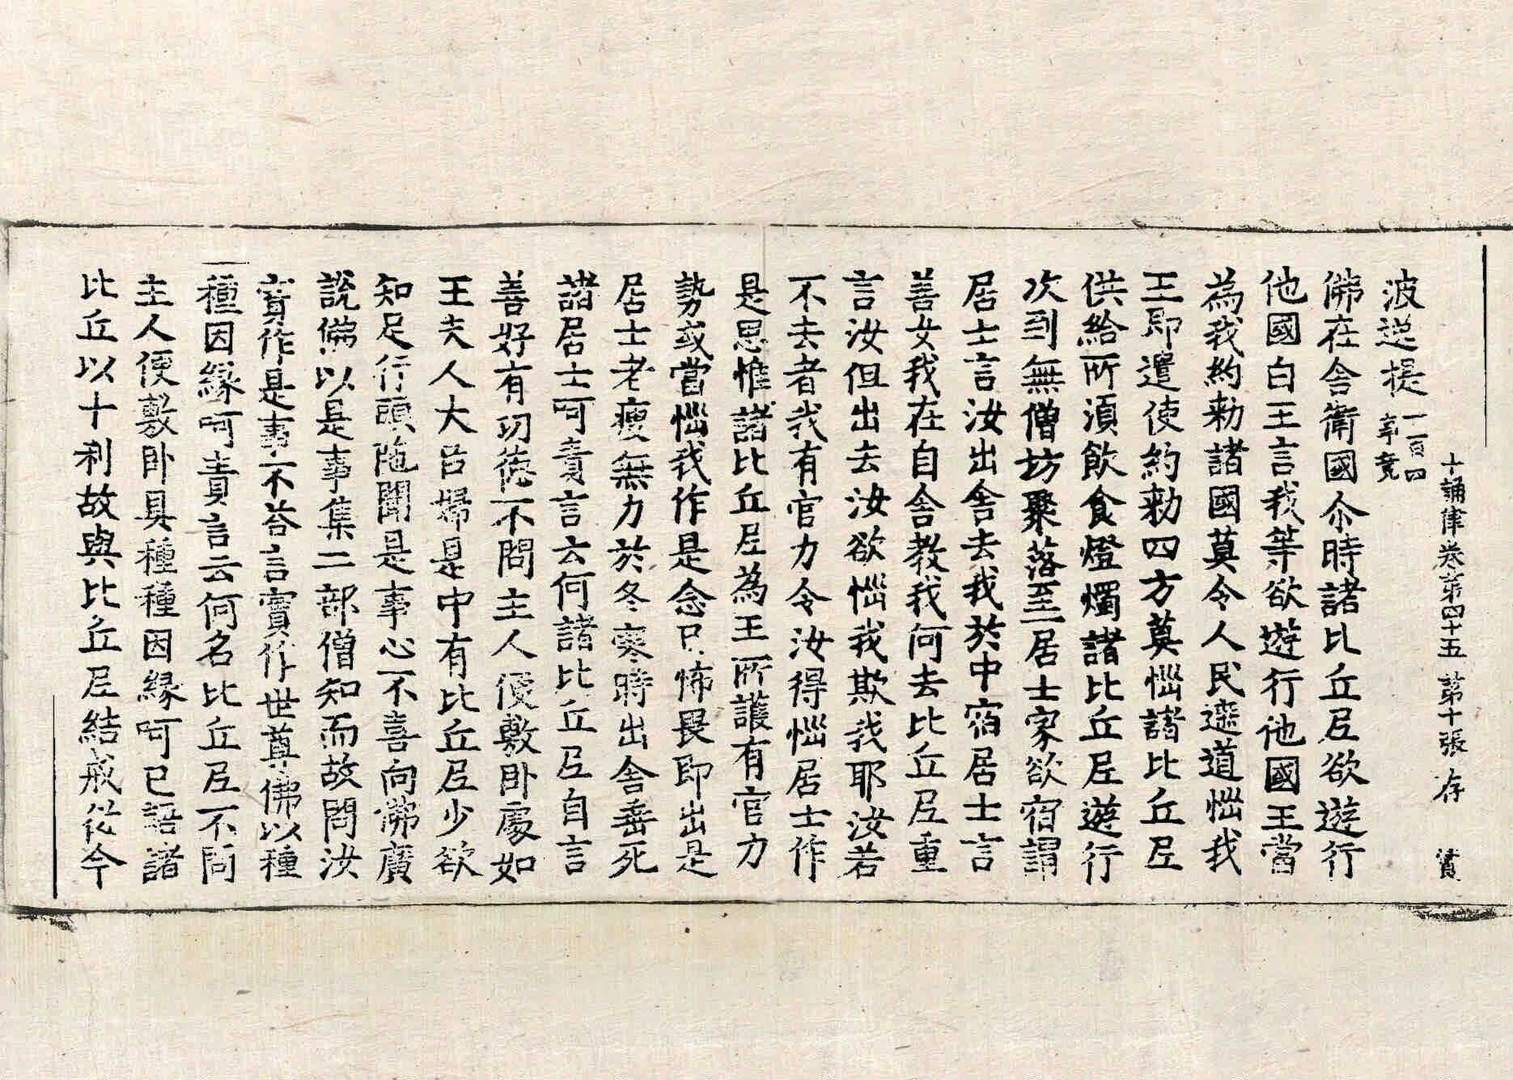 十誦律卷第四十五 第十張 存 賞
波逆提一百四事竟
佛在舍衛國尒時諸比丘尼欲遊行
他國白王言我等欲遊行他國王當
為我約勑諸國莫令人民遮道惱我
王即遣使約勑四方莫惱諸比丘尼
供給所湏飲食燈燭諸比丘尼遊行
次到無僧坊聚落至一居士家欲宿謂
居士言汝出舍去我於中宿居士言
善女我在自舍教我何去比丘尼重
言汝但出去汝欲惱我欺我耶汝若
不去者我有官力令汝得惱居士作
是思惟諸比丘尼為王所護有官力
勢或當惱我作是念已怖畏即出是
居士老瘦無力於冬寒時出舍垂死
諸居士呵責言云何諸比丘尼自言
善好有功德不問主人便敷卧處如
王夫人大臣婦是中有比丘尼少欲
知足行頭陁聞是事心不喜向佛廣
說佛以是事集二部僧知而故問汝
實作是事不荅言實作世尊佛以種
種因緣呵責言云何名比丘尼不問
主人便敷卧具種種因緣呵已語諸
比丘以十利故與比丘尼結戒從今